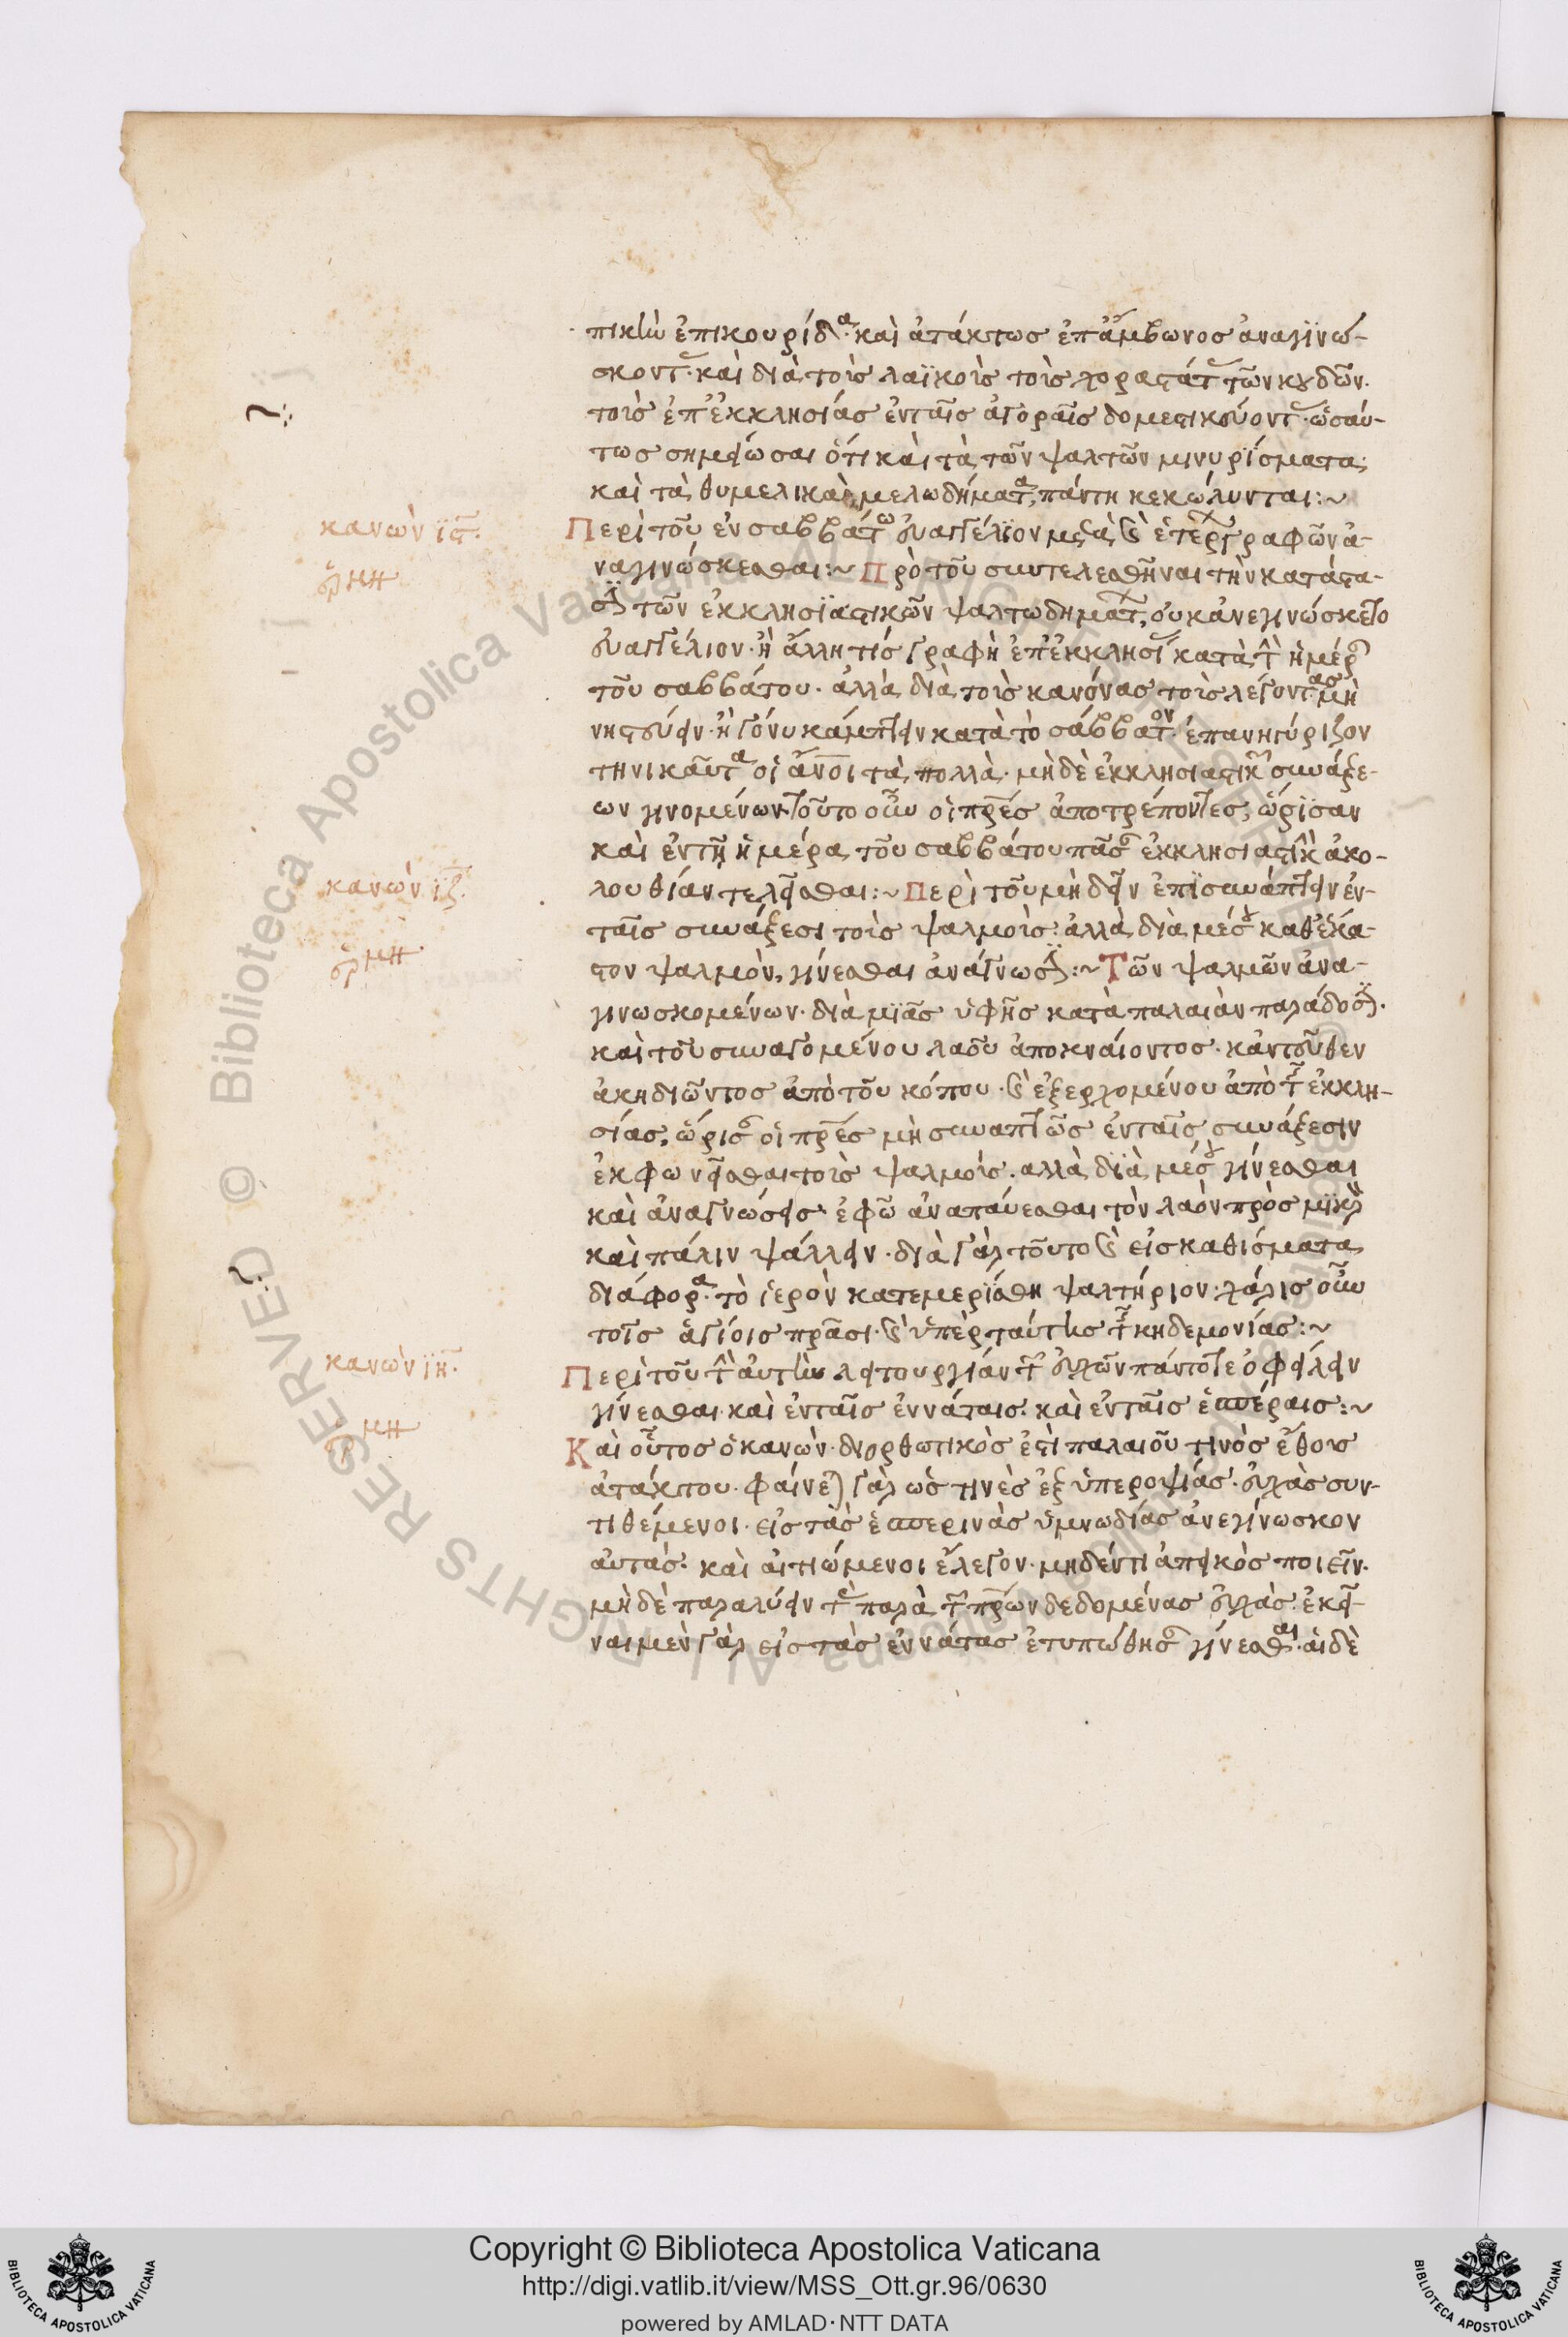 πικὴν ἐπικουρίδα· καὶ ἀτάκτως ἐπἄμβωνος ἀναγινώ-
σκοντας· καὶ διὰ τοὺς λαϊκοὺς τοὺς χοροστάτας τῶν
τοὺς ἐπ' ἐκκλησίας ἐνταῖς ἀγοραῖς δομεστικεύοντας· ὡσαύ-
τως σημείωσαι ὅτι καὶ τὰ τῶν ψαλτῶν μινυρίσματα·
καὶ τὰ θυμελικὰ μελωδήματα, πάντη κεκώλυνται:~
κανὼν ιϛ.
Περὶ τοῦ ἐν σαββάτω εὐαγγέλιον μετὰ καὶ ἑτέρων γραφῶν ἀ-
ναγινώσκεσθαι:~ Πρὸ τοῦ συντελεσθῆναι τὴν κατάστα-
σιν τῶν ἐκκλησϊαστικῶν ψαλτωδημάτων, οὐκ ἀνεγινώσκετο
εὐαγγέλιον· ἢ ἄλλη τίς γραφὴ ἐπ' ἐκκλησίας κατὰ τὴν ἡμέραν
τοῦ σαββάτου· ἀλλὰ διὰ τοὺς κανόνας τοὺς λέγοντας μὴ
νηστεύειν· ἢ γόνυ κάμπτειν κατὰ τὸ σάββατον· ἐπανηγύριζον
τηνικαῦτα οἱ ἄνοι τὰ πολλὰ· μὴ δὲ ἐκκλησιαστικῶν συνάξε-
ων γινομένων· τοῦτο οὖν οἱ πρες ἀποτρέποντες, ὥρϊσαν
καὶ ἐντῆ ἡμέρα τοῦ σαββάτου πᾶσαν ἐκκλησιαστικὴν ἀκο-
κανὼν ιζ.
λουθίαν τελεῖσθαι:~ Περὶ τοῦ μὴ δεῖν ἐπϊσυνάπτειν ἐν-
ταῖς συνάξεσι τοὺς ψαλμοὺς· ἀλλὰ διὰ μέσου καθ' ἕκα-
στον ψαλμὸν, γίνεσθαι ἀνάγνωσιν:~ Τῶν ψαλμῶν ἀνα-
γινωσκομένων· διὰ μϊᾶς ὑφῆς κατὰ παλαιὰν παράδοσιν·
καὶ τοῦ συναγομένου λαοῦ ἀποκναίοντος· κἀντεῦθεν
ἀκηδιῶντος ἀπὸ τοῦ κόπου· καὶ ἐξερχομένου ἀπὸ τῆς ἐκκλη-
σίας, ὥρισαν οἱ πρες μὴ συναπτῶς ἐνταῖς συνάξεσιν
ἐκφωνεῖσθαι τοὺς ψαλμοὺς· ἀλλὰ δϊὰ μέσου γίνεσθαι
καὶ ἀναγνώσεις· ἐφῶ ἀναπαύεσθαι τὸν λαὸν πρὸς μϊκρὸν
καὶ πάλιν ψάλλειν· διὰ γὰρ τοῦτο καὶ εἰς καθίσματα
διάφορα· τὸ ἱερὸν κατεμερίσθη ψαλτήριον· χάρις οὖν
τοῖς ἁγίοις πρασι· καὶ ὑπὲρ ταύτης τῆς κηδεμονίας:~
κανὼν ιη.
Περὶ τοῦ τὴν αὐτὴν λειτουργίαν τῶν εὐχῶν πάντοτε ὀφείλειν
γίνεσθαι· καὶ ἐνταῖς ἐννάταις· καὶ ἐνταῖς ἑσπέραις:~
Καὶ οὗτος ὁ κανὼν· διορθωτικὸς ἐστὶ παλαιοῦ τινὸς ἔθους
ἀτάκτου· φαίνεται γὰρ ὡς τινὲς ἐξ ὑπεροψίας· εὐχὰς συν-
τιθέμενοι· εἰς τὰς ἑσπερινὰς ὑμνωδίας ἀνεγίνωσκον
αὐτὰς· καὶ αἰτιώμενοι ἔλεγον· μηδέν τι ἀπεικὸς ποιεῖν·
μὴ δὲ παραλύειν τὰς παρὰ τῶν πρων δεδομένας εὐχὰς· ἐκεῖ-
ναι μὲν γὰρ εἰς τὰς ἐννάτας ἐτυπώθησαν γίνεσθαι· αἱ δὲ
Copyright © Biblioteca Apostolica Vaticana
http://digi.vatlib.it/view/MSS_Ott.gr.96/0630
powered by AMLAD·NTT DATA
BIBLIOTECA APOSTOLICA VATICANA
BIBLIOTECA APOSTOLICA VATICANA